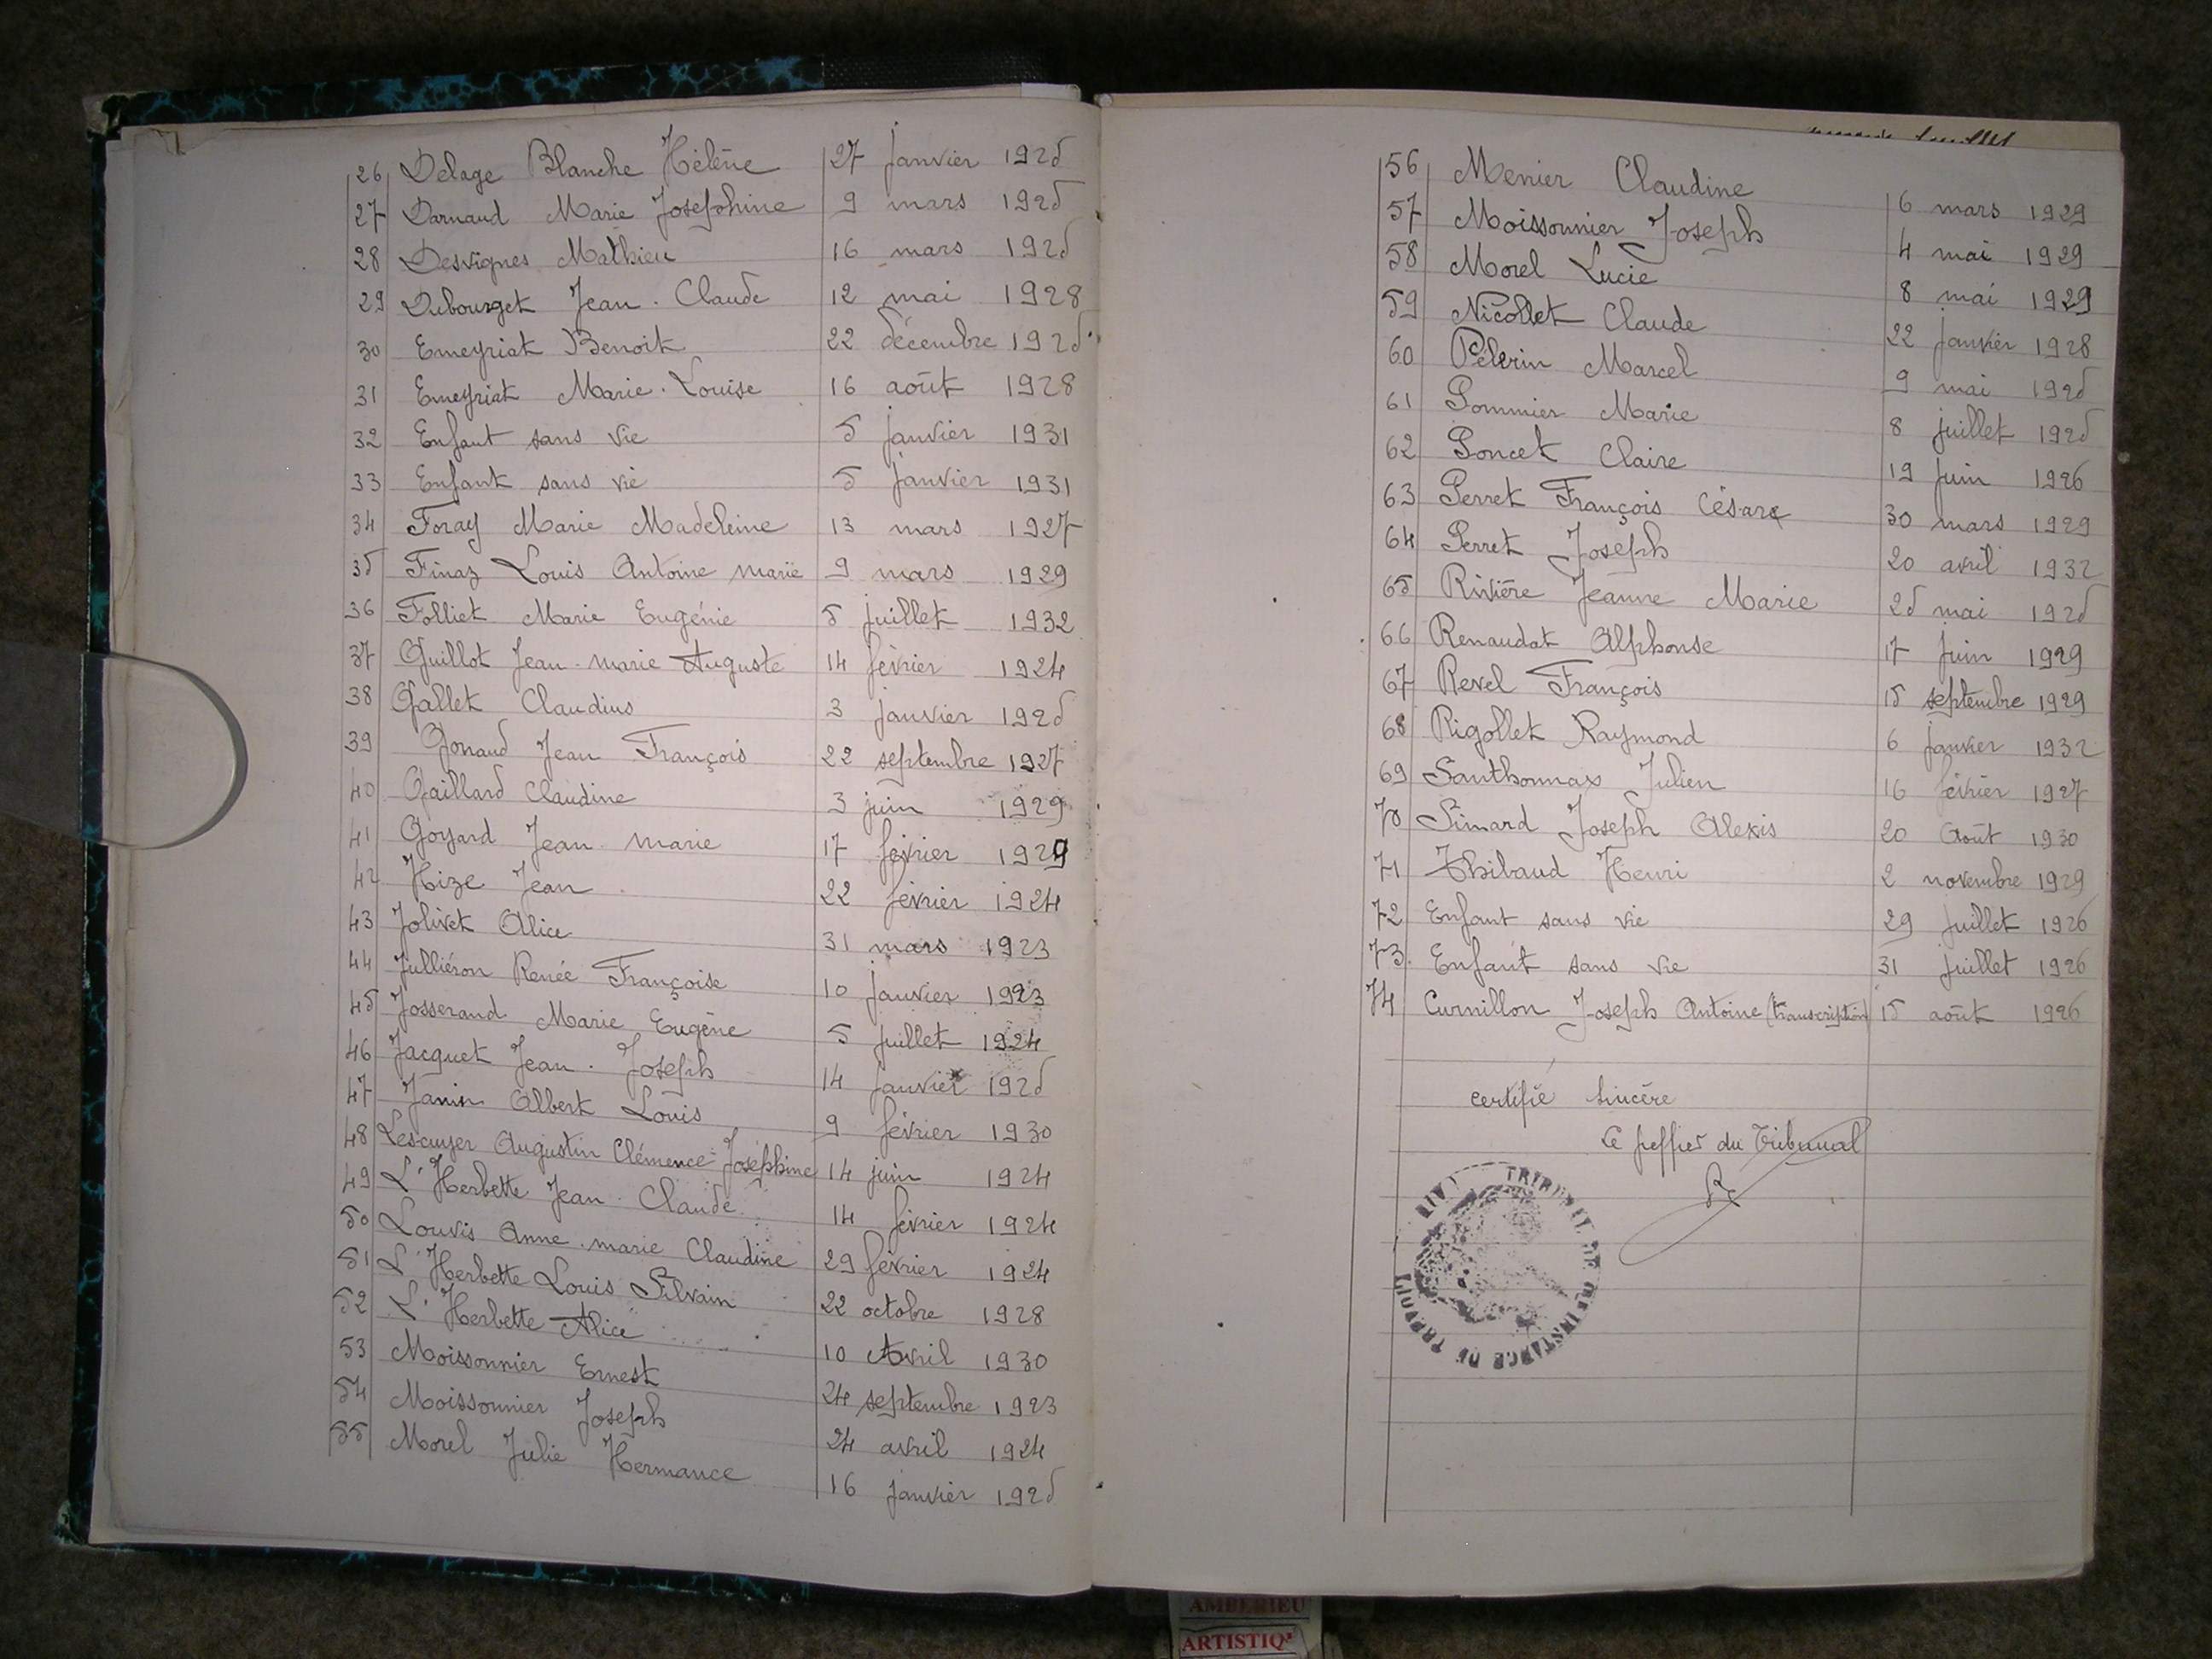 26 Delage Blanche Hélène 27 janvier 1925
27 Darnaud Marie Josephine 9 mars 1925
28 Desvignes Mathieu 16 mars 1925
29 Dubourget Jean-Claude 12 mai 1928
30 Emeyriat Benoit 22 décembre 1925
31 Emeyriat Marie-Louise 16 août 1928
32 Enfant sans vie 5 janvier 1931
33 Enfant sans vie 5 janvier 1931
34 Foray Marie Madeleine 13 mars 1927
35 Finaz Louis Antoine marie 9 mars 1929
36 Folliet Marie Eugénie 5 juillet 1932
37 Guillot Jean-marie Auguste 14 février 1924
38 Gallet Claudius 3 janvier 1925
39 Gonaud Jean François 22 septembre 1927
40 Gaillard Claudine 3 juin 1929
41 Goyard Jean-marie 17 février 1929
42 Hize Jean 22 février 1924
43 Jolivet Alice 31 mars 1923
44 Julliéron Renée Françoise 10 janvier 1923
45 Josserand Marie Eugène 5 juillet 1924
46 Jacquet Jean-Joseph 14 janvier 1925
47 Janin Albert Louis 9 février 1930
48 Lescuyer Augustin Clémence Joséphine 14 juin 1924
49 L'Herbette Jean-Claude 14 février 1924
50 Louvis Anne-marie Claudine 29 février 1924
51 L'Herbette Louis Silvain 22 octobre 1928
52 L'Herbette Alice 10 Avril 1930
53 Moissonnier Ernest 24 septembre 1923
54 Moissonnier Joseph 24 avril 1924
55 Morel Julie Hermance 16 janvier 1925
56 Menier Claudine 6 mars 1929
57 Moissonnier Joseph 4 mai 1929
58 Morel Lucie 8 mai 1929
59 Nicollet Claude 22 janvier 1928
60 Pélerin Marcel 9 mai 1925
61 Pommier Marie 8 juillet 1925
62 Poncet Claire 19 juin 1926
63 Perret François César 30 mars 1929
64 Perret Joseph 20 avril 1932
65 Rivière Jeanne Marie 25 mai 1925
66 Renaudat Alphonse 17 juin 1929
67 Revel François 15 septembre 1929
68 Rigollet Raymond 6 janvier 1932
69 Santhonnax Julien 16 février 1927
70 Simard Joseph Alexis 20 Août 1930
71 Thibaud Henri 2 novembre 1929
72 Enfant sans vie 29 juillet 1926
73 Enfant sans vie 31 juillet 1926
74 Curnillon Joseph Antoine (transcription) 15 août 1926
certifié sincère
Le greffier du Tribunal
TRIBUNAL CIVIL DE 1re INSTANCE DE TREVOUX
AMBERIEU
ARTISTIQ